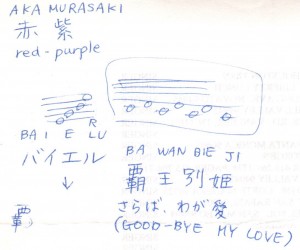 AKA MURASAKI
赤紫
red - purple
R
BA I E LU
バイエル
↓
覇
BA WAN BIE JI
覇王別姫
さらば、わが愛
(GOOD-BYE MY LOVE)